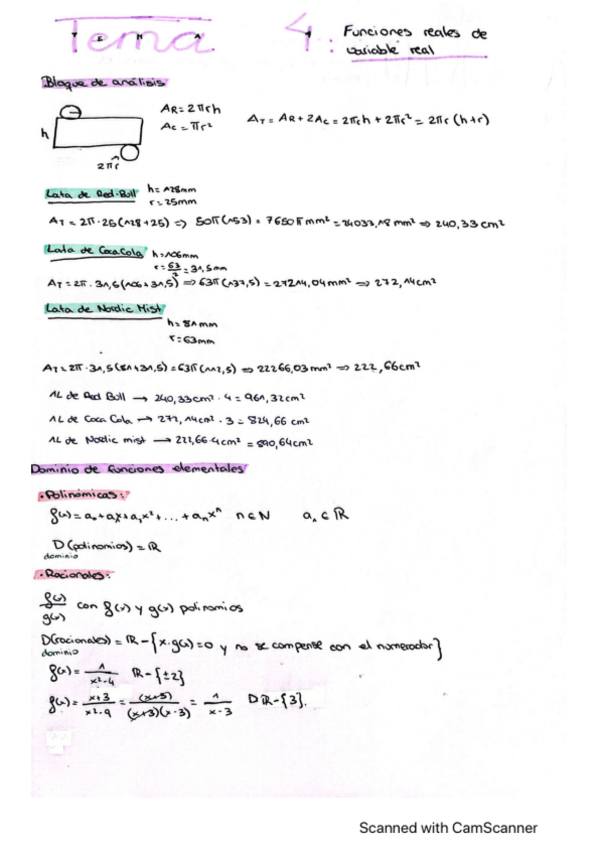 Tema 4: Funciones reales de
variable real
Bloque de análisis
h
2πr
AR = 2πrh
Ac = πr²
AT = AR + 2Ac = 2πrh + 2πr² = 2πr (h+r)
Lata de Red-Bull h = 128mm
r = 25mm
AT = 2π·25(128+25) => 50π(153) = 7650π mm² = 24033,18 mm² => 240,33 cm²
Lata de CocaCola h = 106mm
r = 63/2 = 31,5mm
AT = 2π·31,5(106+31,5) => 63π(137,5) = 27214,04mm² => 272,14cm²
Lata de Nordic Mist
h = 81mm
r = 63mm
AT = 2π·31,5(81+31,5) = 63π(112,5) => 22266,03mm² => 222,66cm²
1L de Red Bull → 240,33cm²·4 = 961,32cm²
1L de Coca Cola → 272,14cm²·3 = 824,66 cm²
1L de Nordic mist → 222,66·4cm² = 890,64cm²
Dominio de funciones elementales
·Polinómicas:
f(x) = a₀+a₁x+a₂x²+...+aₙxⁿ n∈N aₙ∈ℝ
D(polinomios) = ℝ
dominio
·Racionales:
f(x)/g(x) con f(x) y g(x) polinomios
D(racionales) = ℝ-{x·g(x)=0 y no se compense con el numerador}
dominio
f(x) = 1/(x²-4) ℝ-{±2}
f(x) = (x+3)/(x²-9) = (x+3)/((x+3)(x-3)) = 1/(x-3) D ℝ-{3}.
Scanned with CamScanner